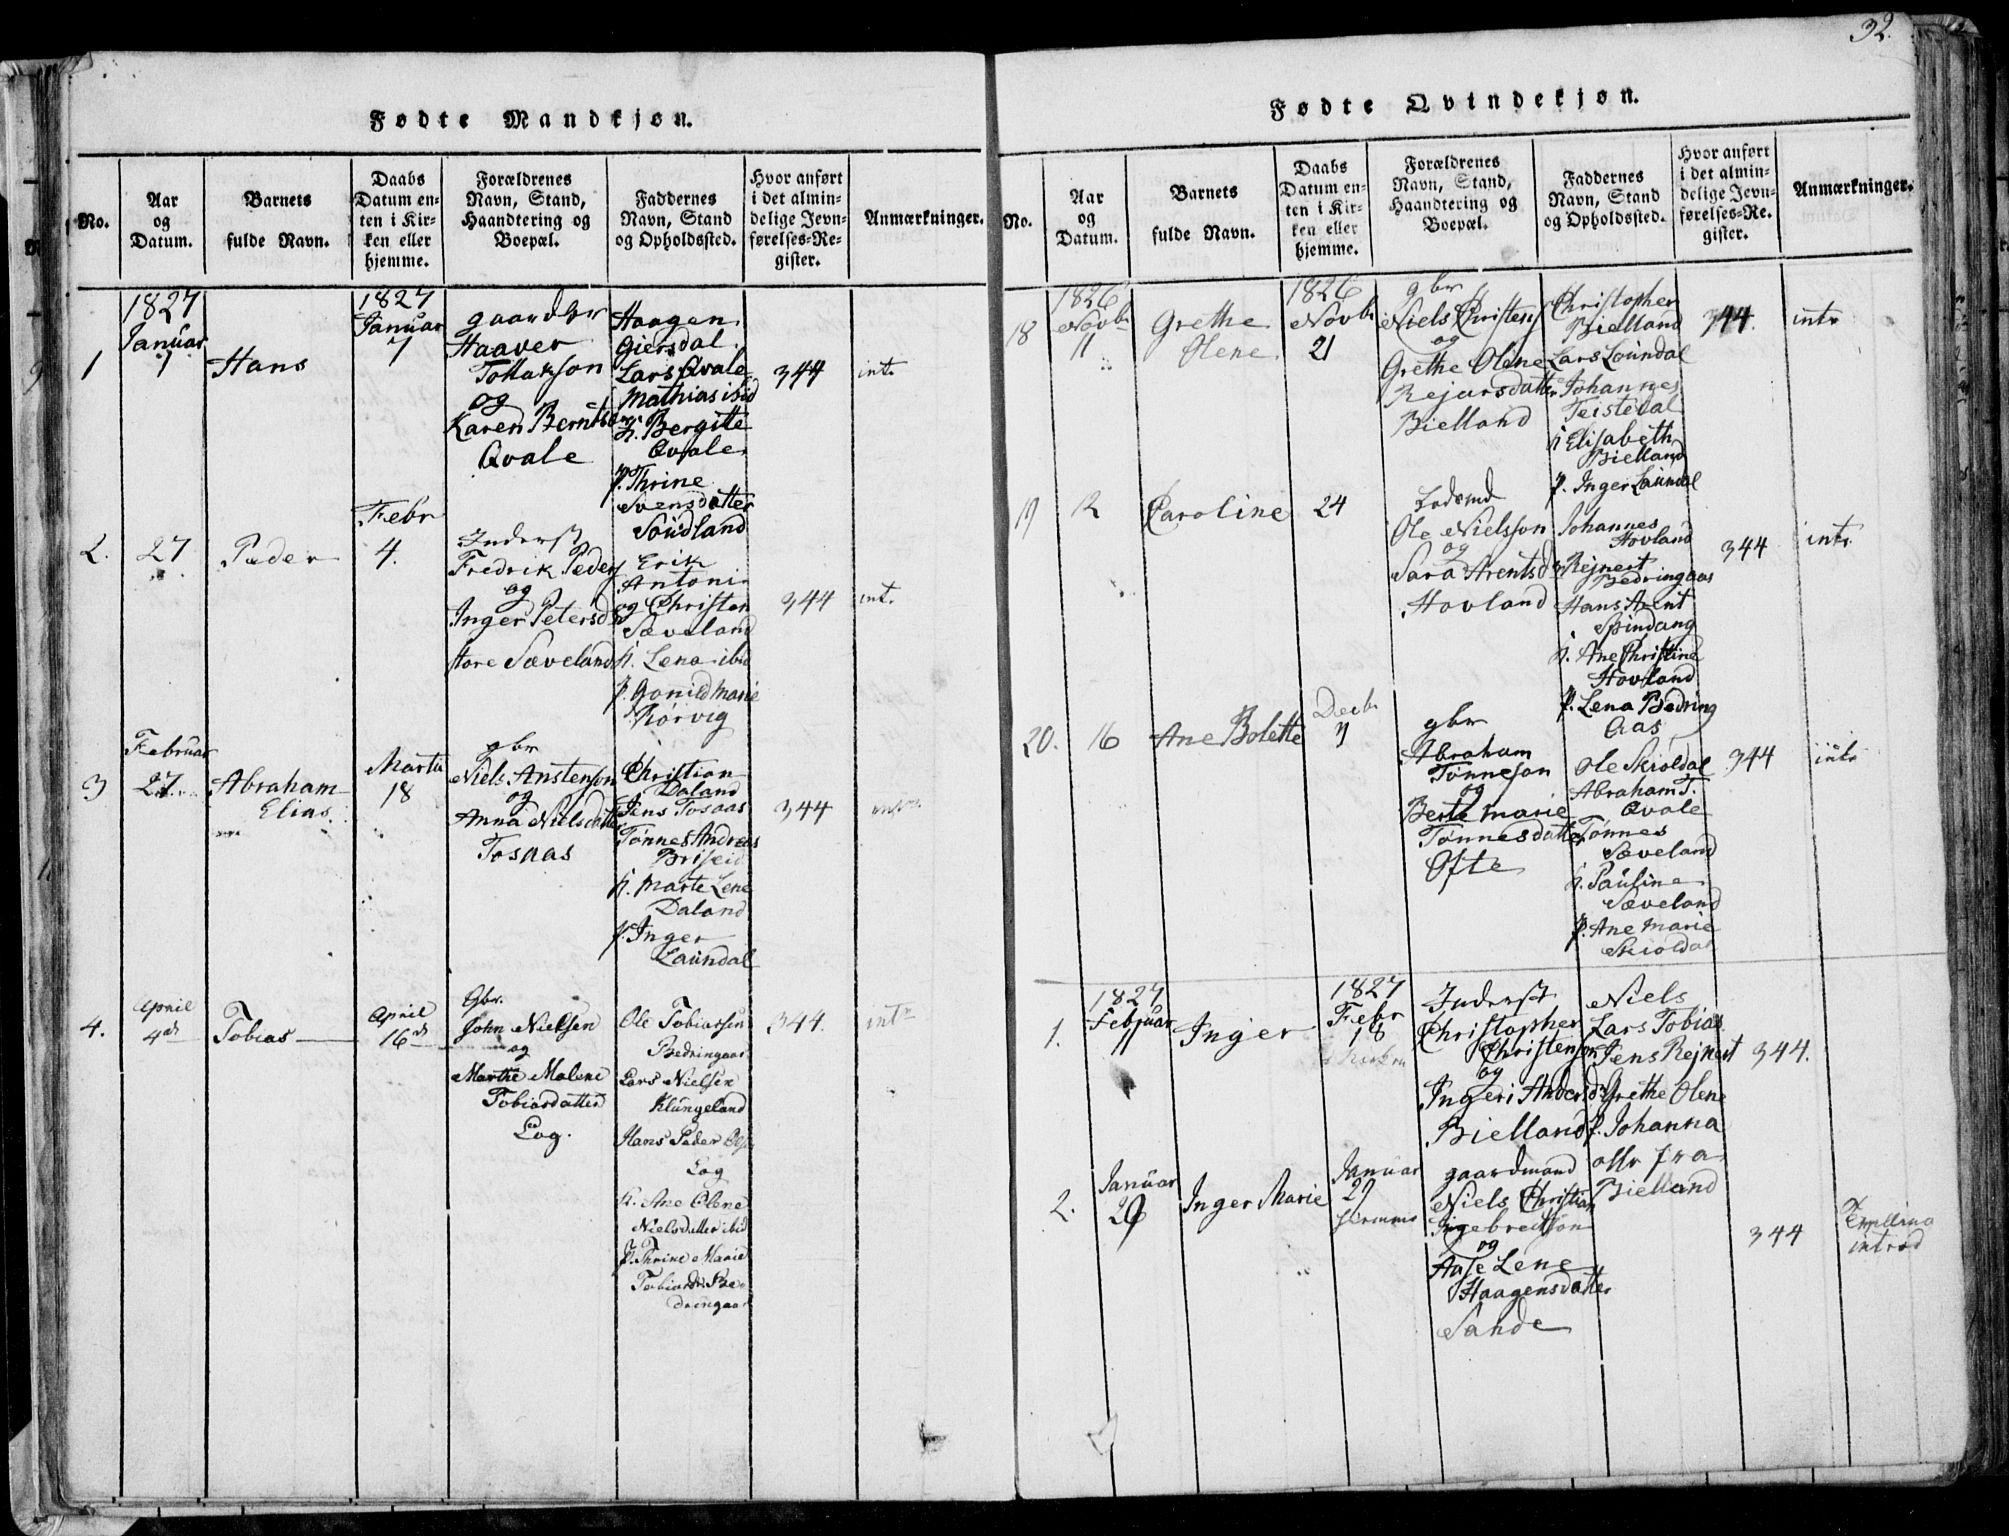 32.
Fødte Mandkjøn.
No.
Aar
og
Datum.
Barnets
fulde Navn.
Daabs
Datum en-
ten i Kir-
ken eller
hjemme.
Forældrenes
Navn, Stand,
Haandtering og
Boepæl.
Faddernes
Navn, Stand
og Opholdssted.
Hvor anført
i det almin-
delige Jevn-
førelses-Re-
gister.
Anmærkninger.
1
1827
Januar
7
Hans
1827
Januar
7
gaardbr
Haaver
Tollakson
og
Karen Berntsd
Qvale
Haagen
Giersdal
Lars Qvale
Mathias ibid
h. Bergitte
Qvale
p. Thrine
Svensdatter
Soudland
344
int.
2.
27
Peder
Febr
4.
Inderst
Fredrik Peders
og
Inger Petersdr
store Sæveland
Erik
Antoni
og Christen
Sæveland
h. Lena ibid
p. Gonild Marie
Rørvig
344
int.
3
Februar
27
Abraham
Elias
Marti
18
gbr
Niels Anstenson
og
Anna Nielsdatter
Tosaas
Christian
Daland
Jens Tosaas
Tønnes Andreas
Briseid
h. Marte Lene
Daland
p. Inger
Laundal
344
int.
4.
April
4de
Tobias
April
16de
Gbr.
John Nielsen
og
Marthe Malene
Tobiasdatter
Log.
Ole Tobiassen
Bedringaas
Lars Nielsen
Klungeland
Hans Peder
Log
h. Ane Olene
Nielsdatter ibid
p. Thrine Marie
Tobiasdr Be-
dringaas
344.
intr
Fødte Qvindekjøn.
No.
Aar
og
Datum.
Barnets
fulde Navn.
Daabs
Datum en-
ten i Kir-
ken eller
hjemme.
Forældrenes
Navn, Stand,
Haandtering og
Boepæl.
Faddernes
Navn, Stand
og Opholdssted.
Hvor anført
i det almin-
delige Jevn-
førelses-Re-
gister.
Anmærkninger.
18
1826
Novbr
11
Grethe
Olene
1826
Novbr
21
gbr
Niels Christens
og
Grethe Olene
Rejarsdatter
Bielland
Christopher
Bielland
Lars Laundal
Johannes
Teistedal
h Elisabeth
Bielland
p. Inger Laundal
344.
intr
19
12
Caroline
24
Ledsmd
Ole Nielsson
og
Sara Arentsdr
Hovland
Johannes
Hovland
Rejnert
Bedringaas
Hans Arnt
Spindang
h. Ane Christine
Hovland
p. Lena Bedring
Aas
344
intr
20.
16
Ane Bolette
Decbr
7
gbr
Abraham
Tønneson
og
Berte Marie
Tønnesdatter
Ofte
Ole Skioldal
Abraham T.
Qvale
Tønnes
Sæveland
h. Pauline
Sæveland
p. Ane Marie
Skioldal
344
intr
1.
1827
Februar
11
Inger
1827
Febr
18
i Kirken
Inderst
Christopher
Christenson
og
Ingeri Andersdr
Bielland
Niels
Lars Tobias
Jens Rejnert
Grethe Olene
p. Johanna
alle fra
Bielland
344.
2.
Januar
26
Inger Marie
Januar
29
hiemme
gaardmand
Niels Christian
Ingebretson
og
Aase Lene
Haagensdatter
Sande
344
introd